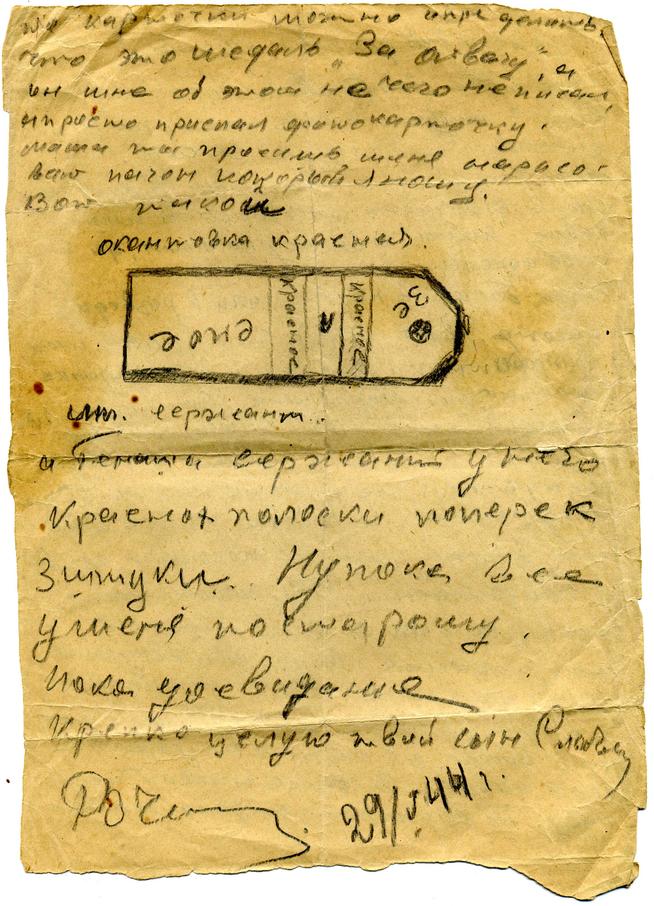 по карточки можно определить,
что это медаль „За отвагу", а
он мне об этом не чего не писал,
а просто прислал фотокарточку.
мама ты просишь меня нарисо-
вать пагон который я ношу.
Вот такой
окантовка красная.
Красное
Красное
поле
мл. сержант.
а Генка сержант у него
3 красных полоски поперек
Ну пока все
у меня по старому.
Пока досвидание
Крепко целую твой сын
29/V 44 г.